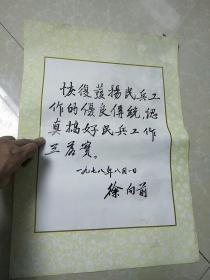 恢復發揚民兵工
作的優良傳統，認
真搞好民兵工作
三落實。
一九七八年八月一日
徐向前